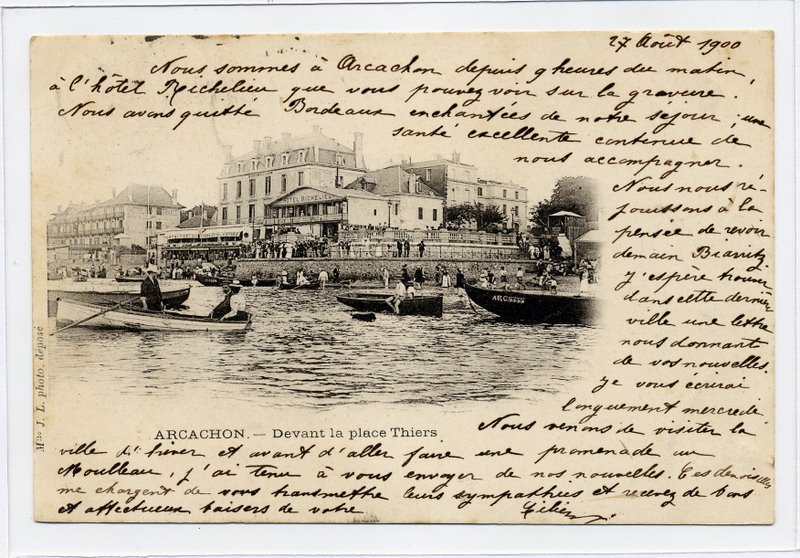 27 Août 1900
Nous sommes à Arcachon depuis 9 heures du matin,
à l'hôtel Richelieu que vous pouvez voir sur la gravure.
Nous avons quitté Bordeaux enchantées de notre séjour ; une
santé excellente continue de
nous accompagner.
Nous nous ré-
jouissons à la
pensée de revoir
demain Biarritz
J'espère trouver
dans cette dernière
ville une lettre
nous donnant
de vos nouvelles.
Je vous écrirai
longuement mercredi
HOTEL RICHELIEU
ARC
Mtte J. L. photo. déposé
ARCACHON. — Devant la place Thiers
Nous venons de visiter la
ville d'hiver et avant d'aller faire une promenade au
Moulleau, j'ai tenu à vous envoyer de nos nouvelles. Ces demoiselles
me chargent de vous transmettre leurs sympathies et recevez de bons
et affectueux baisers de votre